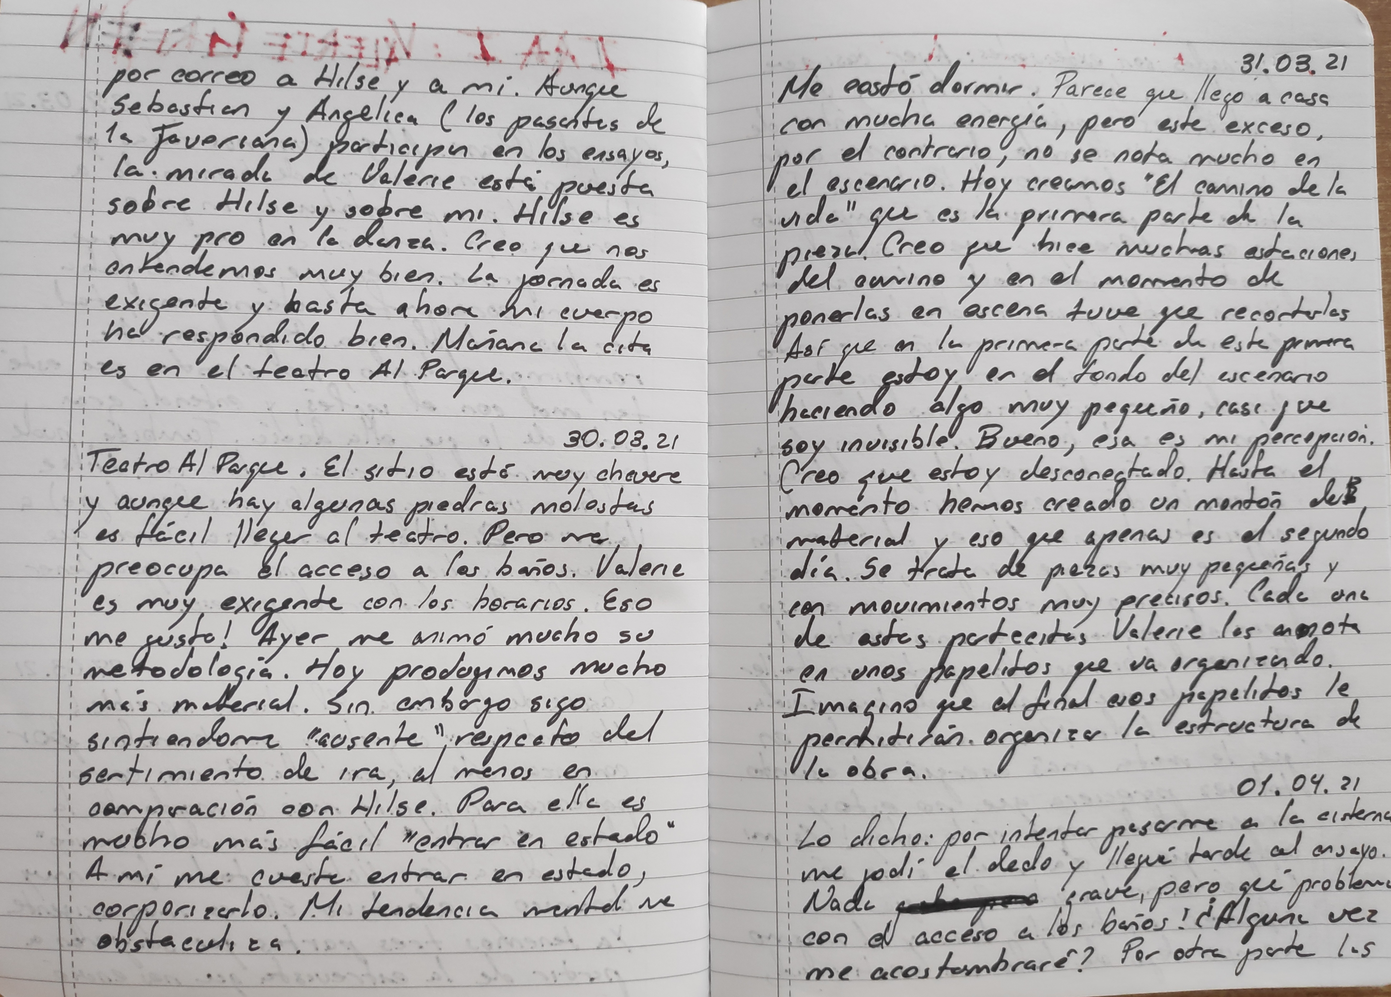 por correo a Hilse y a mi. Aunque
Sebastian y Angélica (los pasantes de
la Javeriana) participan en los ensayos,
la mirada de Valerie está puesta
sobre Hilse y sobre mi. Hilse es
muy pro en la danza. Creo que nos
entendemos muy bien. La jornada es
exigente y hasta ahora mi cuerpo
ha respondido bien. Mañana la cita
es en el teatro Al Parque.
30.03.21
Teatro Al Parque. El sitio está muy chevere
y aunque hay algunas piedras molestas
es fácil llegar al teatro. Pero me
preocupa el acceso a los baños. Valerie
es muy exigente con los horarios. Eso
me gusta! Ayer me animó mucho su
metodología. Hoy produjimos mucho
más material. Sin embargo sigo
sintiendome "ausente" respecto del
sentimiento de ira, al menos en
comparación con Hilse. Para ella es
mucho más fácil "entrar en estado"
A mi me cuesta entrar en estado,
corporizarlo. Mi tendencia mental me
obstaculiza.
31.03.21
Me costó dormir. Parece que llego a casa
con mucha energía, pero este exceso,
por el contrario, no se nota mucho en
el escenario. Hoy creamos "El camino de la
vida" que es la primera parte de la
pieza. Creo que hice muchas estaciones
del camino y en el momento de
ponerlas en escena tuve que recortarlas
Así que en la primera parte de esta primera
parte estoy en el fondo del escenario
haciendo algo muy pequeño, casi que
soy invisible. Bueno, esa es mi percepción.
Creo que estoy desconectado. Hasta el
momento hemos creado un montón de
material y eso que apenas es el segundo
día. Se trata de piezas muy pequeñas y
con movimientos muy precisos. Cada una
de estas partecitas Valerie las anota
en unos papelitos que va organizando.
Imagino que al final esos papelitos le
permitirán organizar la estructura de
la obra.
01.04.21
Lo dicho: por intentar pasarme a la cisterna
me jodí el dedo y llegué tarde al ensayo.
Nada grave, pero qué problema
con el acceso a los baños! ¿Alguna vez
me acostumbraré? Por otra parte las